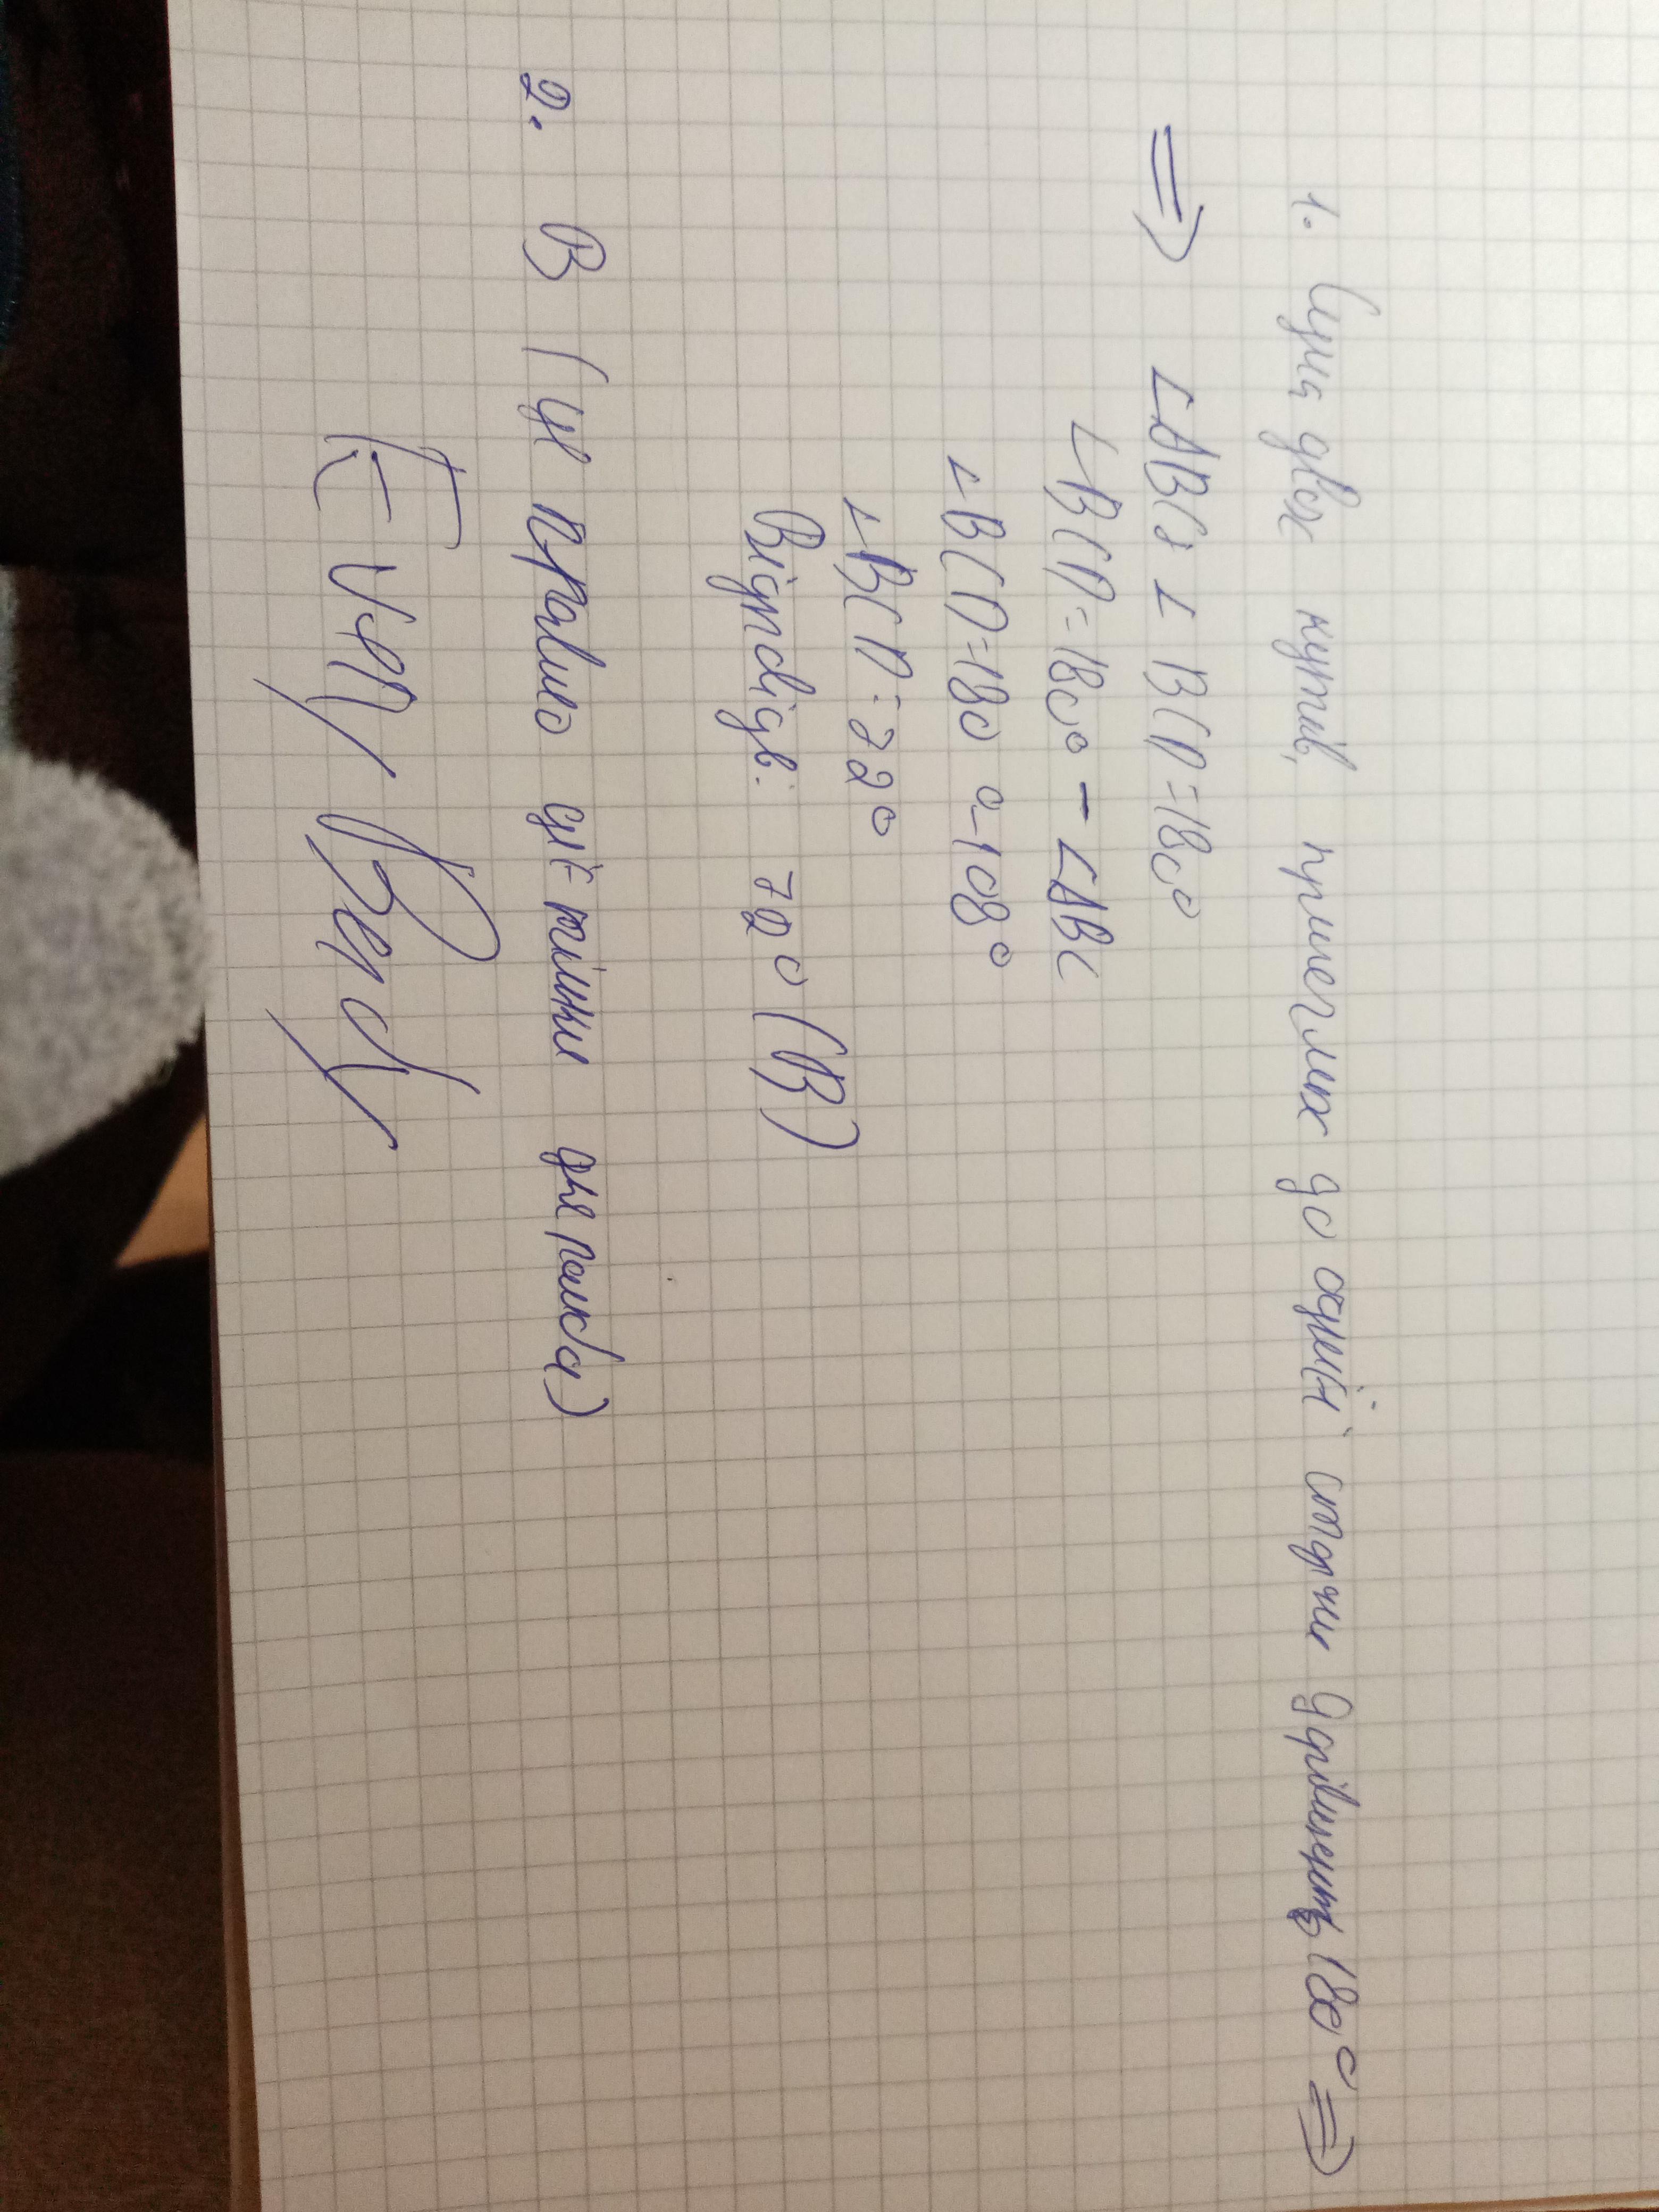 1. Сума двох кутів, прилеглих до однієї сторони дорівнюють 180° ⇒
⇒ ∠ABC + ∠BCD = 180°
∠BCD = 180° - ∠ABC
∠BCD = 180° - 108°
∠BCD = 72°
Відповідь: 72° (В)
2. В (це правило діє тільки для ромба)